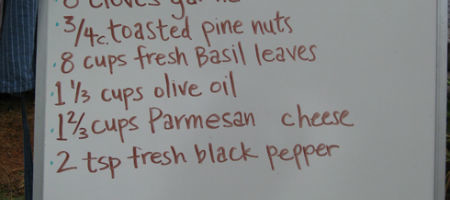 · 3/4c. toasted pine nuts
· 8 cups fresh Basil leaves
· 1 1/3 cups olive oil
· 1 2/3 cups Parmesan cheese
· 2 tsp fresh black pepper